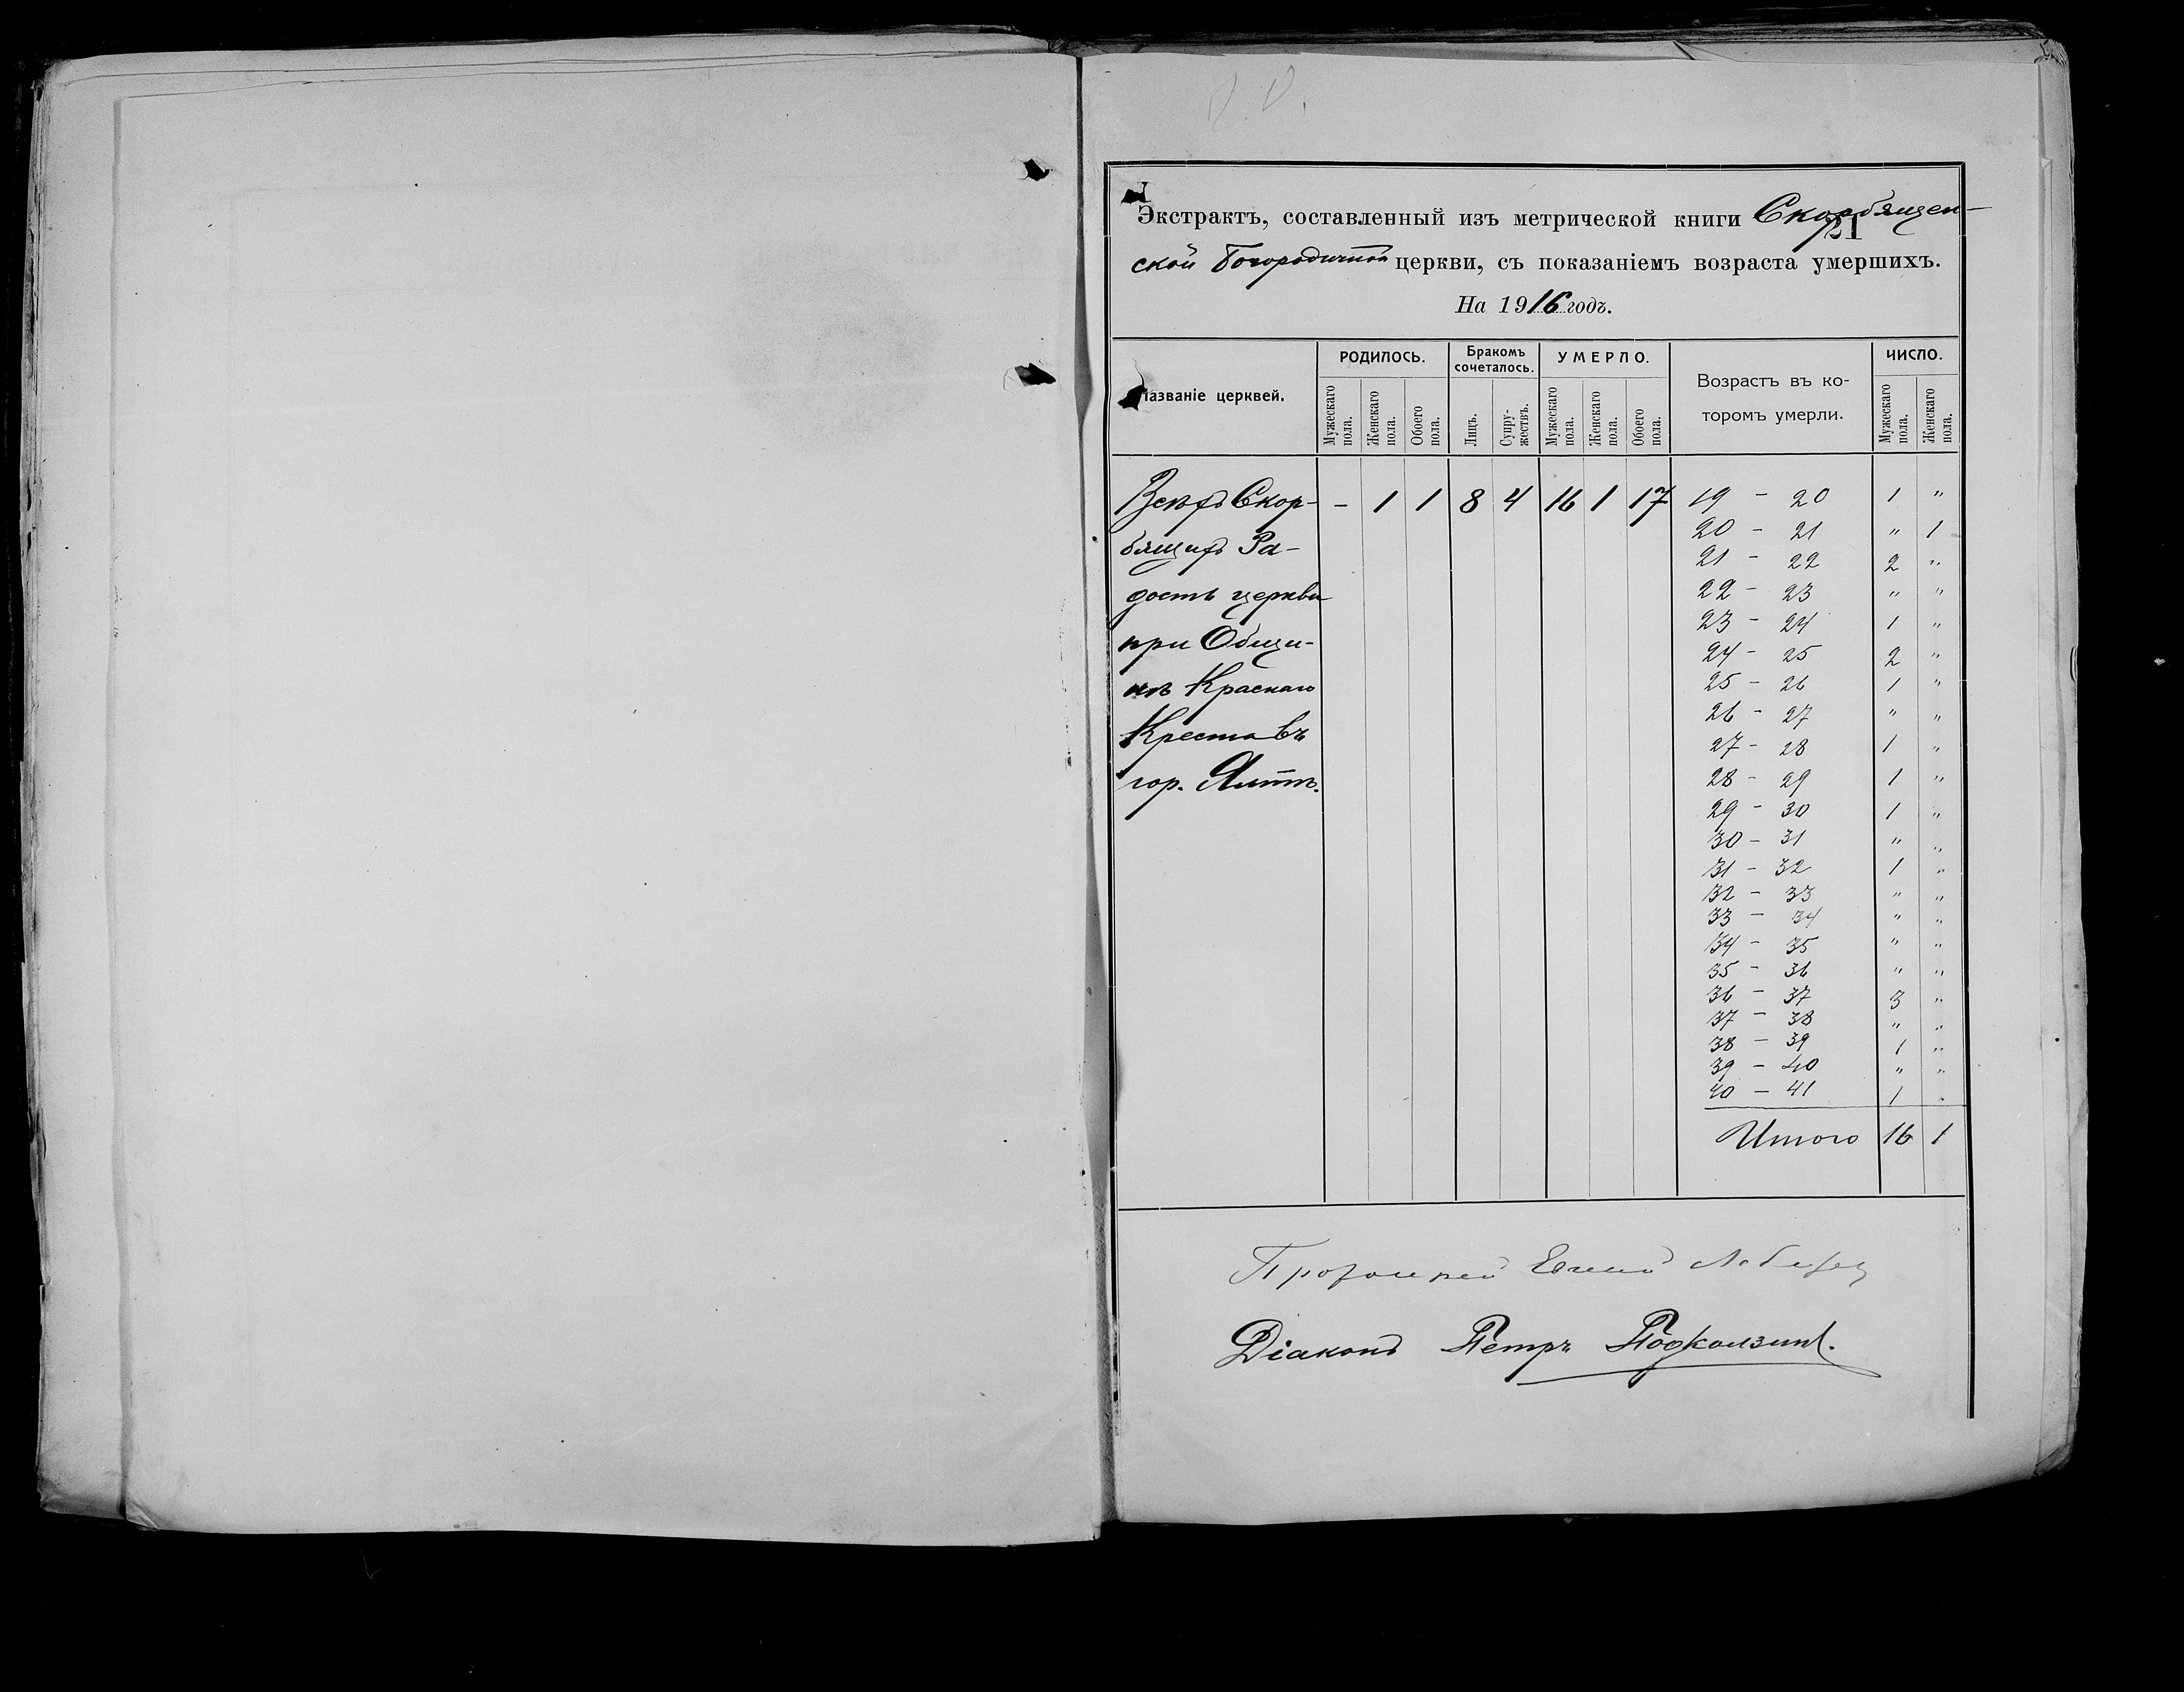 Экстрактъ, составленный изъ метрической книги Скорбящен-
21
ской Богородичной церкви, съ показаніемъ возраста умершихъ.
На 1916 годъ.
Названіе церквей.
РОДИЛОСЬ.
Бракомъ сочеталось.
УМЕРЛО.
Возрастъ въ ко-
торомъ умерли.
ЧИСЛО.
Мужескаго пола.
Женскаго пола.
Обоего пола.
Лицъ.
Супру-
жествъ.
Мужескаго пола.
Женскаго пола.
Обоего пола.
Мужескаго пола.
Женскаго пола.
Всѣхъ Скор- – 1 1 8 4 16 1 17
бящихъ Ра-
дость церкви
при Общи-
нѣ Краснаго
Креста въ
гор. Ялтѣ.
19 – 20 1 "
20 – 21 " 1
21 – 22 2 "
22 – 23 " "
23 – 24 1 "
24 – 25 2 "
25 – 26 1 "
26 – 27 " "
27 – 28 1 "
28 – 29 1 "
29 – 30 1 "
30 – 31 " "
31 – 32 1 "
32 – 33 " "
33 – 34 " "
34 – 35 " "
35 – 36 " "
36 – 37 3 "
37 – 38 " "
38 – 39 1 "
39 – 40 " "
40 – 41 1 "
Итого 16 1
Протоиерей
Діаконъ Петръ Подколзинъ.